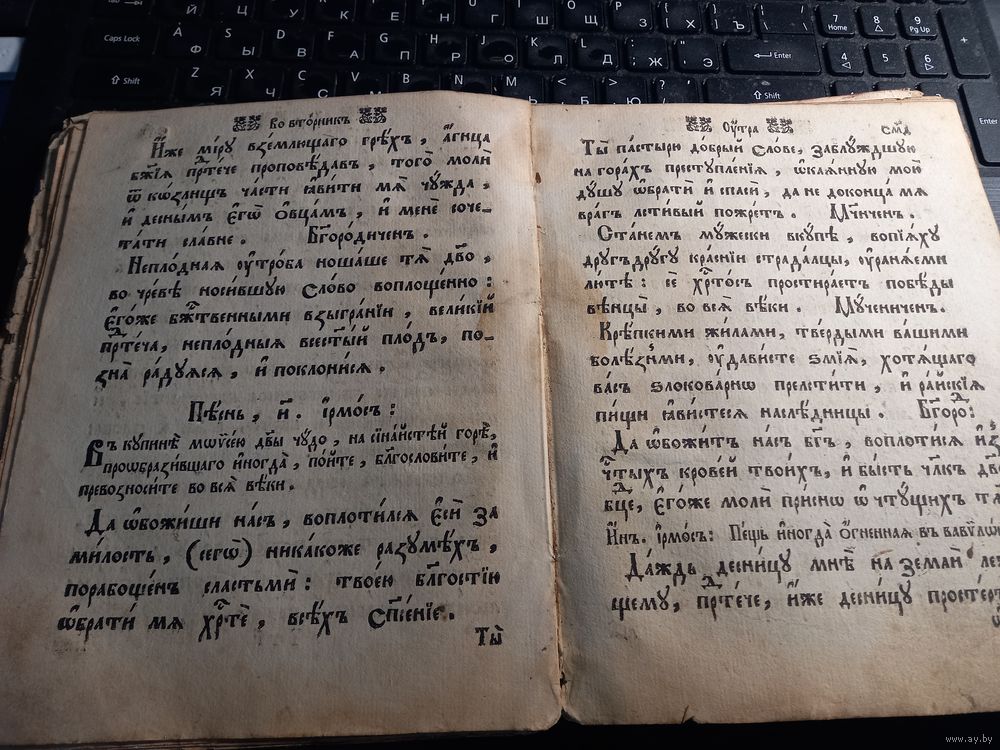 Во вто́рникъ
И҆́же мі́рꙋ взе́млющаго грѣ́хъ , а҆́гнца
бж҃їѧ прⷣте́че проповѣ́давъ , того̀ молѝ
ѿ ко́злищъ ча́сти ꙗ҆ви́ти мѧ̀ чꙋ́жда ,
и҆ десны́мъ є҆гѡ̀ ѻ҆вца́мъ , и҆ менѐ соче-
та́ти сла́вне . Бг҃оро́диченъ .
Непло́днаѧ оу҆тро́ба ноша́ше тѧ̀ дв҃о ,
во чре́вѣ носи́вшꙋю сло́во воплоще́нно :
є҆го́же бж҃твенными взыгра́нїи , вели́кїй
прⷣте́ча , непло́дныѧ всесты́й пло́дъ , по-
зна̀ ра́дꙋѧсѧ , и҆ поклони́сѧ .
Пѣ́снь , и҃ . і҆рмо́съ :
Въ кꙋпинѣ̀ мѡѷсе́ю дв҃ы чꙋ́до , на сїна́йстѣй горѣ̀ ,
проѡбрази́вшаго и҆ногда̀ , по́йте , блг҃ослови́те , и҆
превозноси́те во всѧ̀ вѣ́ки .
Да ѡ҆божи́ши на́съ , воплоти́лсѧ є҆сѝ за
ми́лость , (сегѡ̀) ника́коже разꙋмѣ́хъ ,
порабоще́нъ сластьмѝ : твое́ю блг҃остїю
ѡ҆брати́ мѧ хрⷭ҇тѐ , всѣ́хъ сп҃се́нїе .
Ты̀
Оу҆́тра
смд҃
Ты̀ па́стырю до́брый сло́ве , заблꙋ́ждшꙋю
на гора́хъ престꙋпле́нїѧ , ѡ҆каѧ́ннꙋю мою̀
дꙋ́шꙋ ѡ҆братѝ и҆ спасѝ , да не доконца̀ мѧ
вра́гъ лсти́вый пожре́тъ . Мч҃нченъ .
Ста́немъ мꙋ́жески вкꙋ́пѣ , вопїѧ́хꙋ
дрꙋ́гъдрꙋ́гꙋ кра́снїи страда́лцы , оу҆ранѧ́еми
лю́тѣ : сѐ хрⷭ҇то́съ простира́етъ побѣ́ды
вѣнцы̀ , во всѧ̀ вѣ́ки . Мꙋ́чениченъ .
Крѣ́пкими жи́лами , тве́рдыми ва́шими
болѣ́зньми , оу҆дави́сте ѕмі́ѧ , хотѧ́щаго
ва́съ ѕлокова́рнѡ прелсти́ти , и҆ ра́йскїѧ
пи́щи ꙗ҆ви́стесѧ наслѣ́дницы . Бг҃оро :
Да ѡ҆божи́тъ на́съ бг҃ъ , воплоти́сѧ и҆з̾
чⷭ҇тыхъ крове́й твои́хъ , и҆ бы́сть чл҃къ дв҃о
вⷣце , є҆го́же молѝ при́снѡ ѡ҆ чтꙋ́щихъ тѧ
И҆́нъ . і҆рмо́съ : Пе́щь и҆ногда̀ ѻ҆́гненнаѧ въ вавѷлѡ́
Да́ждь десни́цꙋ мнѣ̀ на землѝ ле
щемꙋ , прⷣте́че , и҆́же десни́цꙋ просте́р
Caps Lock
Shift
Enter
Shift
Home
Pg Up
Enter
www.ay.by